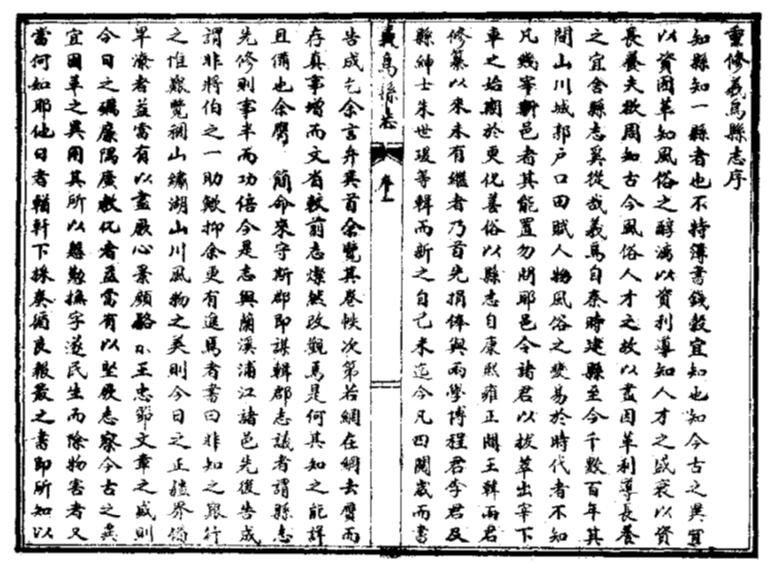 重修義烏縣志序
知縣知一縣者也不特簿書錢穀宜知也知今古之異宜
以資因革知風俗之醇漓以資利導知人才之盛衰以資
長養夫欲周知古今風俗人才之故以盡因革利導長養
之宜舍縣志奚從哉義烏自秦時建縣至今千數百年其
間山川城郭戶口田賦人物風俗之變易於時代者不知
凡幾宰斯邑者其能置勿問耶邑令諸君以拔萃出宰下
車之始期於更化善俗以縣志自康熙雍正間王韓兩君
修纂以來未有繼者乃首先捐俸與兩學博程君李君及
縣紳士朱世瑗等輯而新之自己未迄今凡四閱歲而書
義烏縣志
序
告成乞余言弁其首余覽其卷帙次第若網在綱去贋而
存真事增而文省較前志燦然改觀焉是何其知之能詳
且備也余膺簡命來守斯郡即謀輯郡志議者謂縣志
先修則事半而功倍今是志與蘭溪浦江諸邑先後告成
謂非將伯之一助歟抑余更有進焉者書曰非知之艱行
之惟艱覽稠山繡湖山川風物之美則今日之正疆界備
旱潦者益當有以盡厥心景顏駱宗王忠節文章之盛則
今日之礪廉隅廣教化者益當有以堅厥志察今古之異
宜因革之異用其所以懇勤撫字遂民生而除物害者又
當何如耶他日者輶軒下採奏循良報最之書即所知以